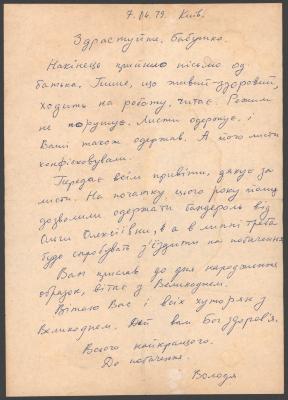 7.04.79. Київ.
Здраствуйте, Бабунко.
Накінець прийшло письмо од
батька. Пише, що живий-здоровий,
ходить на роботу, читає. Режим
не порушує. Листи одержує, і
Ваші також одержав. А його листи
конфісковували.
Передає всім привіти, дякує за
листи. На початку цього року йому
дозволили одержати бандероль від
Ольги Олексіївни, а в липні треба
буде спробувать з'їздити на побачення.
Вам прислав до дня народження
образок, вітає з Великоднем.
Вітаю Вас і всіх хуторян з
Великоднем. Дай вам Бог здоров'я.
Всього найкращого.
До побачення.
Володя